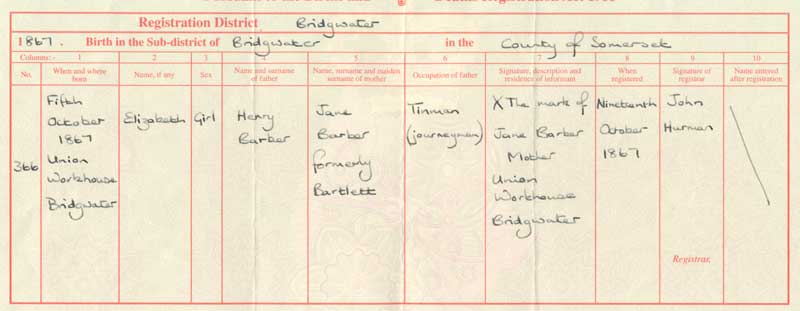 Registration District Bridgwater
1867. Birth in the Sub-district of Bridgwater in the County of Somerset
Columns:- 1 2 3 4 5 6 7 8 9 10
No. When and where born Name, if any Sex Name and surname of father Name, surname and maiden surname of mother Occupation of father Signature, description and residence of informant When registered Signature of registrar Name entered after registration
366
Fifth
October
1867
Union
Workhouse
Bridgwater
Elizabeth
Girl
Henry
Barber
Jane
Barber
formerly
Bartlett
Tinman
(journeyman)
X The mark of
Jane Barber
Mother
Union
Workhouse
Bridgwater
Nineteenth
October
1867
John
Hurman
Registrar.